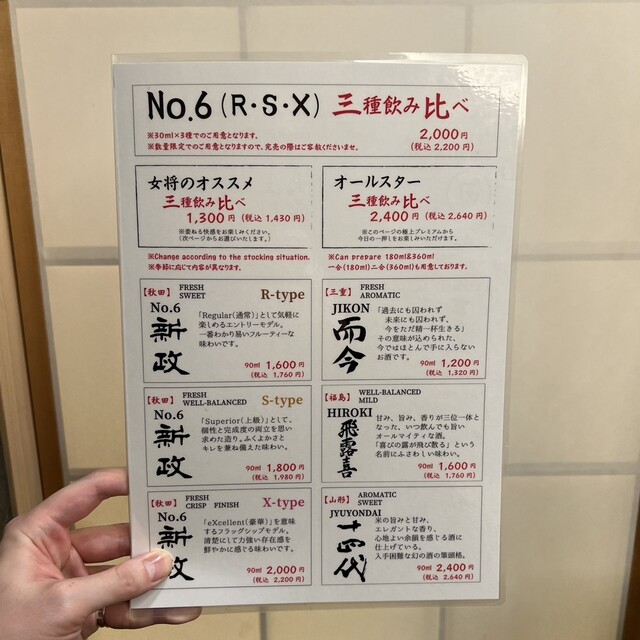 No.6 (R・S・X) 三種飲み比べ
※30ml×3種でのご用意となります。
※数量限定でのご用意となりますので、完売の際はご容赦くださいませ。
2,000円
(税込 2,200 円)
女将のオススメ
三種飲み比べ
1,300円 (税込 1,430 円)
※委ねる快感をお楽しみください。
(次ページからお選びいたします。)
オールスター
三種飲み比べ
2,400円 (税込 2,640 円)
※このページの極上プレミアムから
今日の一押しをお楽しみいただけます。
※Change according to the stocking situation.
※季節に応じて内容が異なります。
※Can prepare 180ml&360ml
一合(180ml)二合(360ml)も用意しております。
【秋田】 FRESH
SWEET
R-type
No.6
新政
「Regular(通常)」として気軽に
楽しめるエントリーモデル。
一番わかり易いフルーティーな
味わいです。
90ml 1,600円
(税込 1,760 円)
【秋田】 FRESH
WELL-BALANCED
S-type
No.6
新政
「Superior(上級)」として、
個性と完成度の両立を思い
求めた造り。ふくよかさと
キレを兼ね備えた味わい。
90ml 1,800円
(税込 1,980 円)
【秋田】 FRESH
CRISP FINISH
X-type
No.6
新政
「eXcellent(豪華)」を意味
するフラッグシップモデル。
清楚にして力強い存在感を
鮮やかに感じる味わいです。
90ml 2,000円
(税込 2,200 円)
【三重】 FRESH
AROMATIC
JIKON
而今
「過去にも囚われず
未来にも囚われず、
今をただ精一杯生きる」
その意味が込められた、
今ではほとんど手に入らない
お酒です。
90ml 1,200円
(税込 1,320 円)
【福島】 WELL-BALANCED
MILD
HIROKI
飛露喜
甘み、旨み、香りが三位一体と
なった、いつ飲んでも旨い
オールマイティな酒。
「喜びの露が飛び散る」という
名前にふさわしい味わい。
90ml 1,600円
(税込 1,760 円)
【山形】 AROMATIC
SWEET
JYUYONDAI
十四代
米の旨みと甘み、
エレガントな香り、
心地よい余韻を感じる酒に
仕上げている。
入手困難な幻の酒の筆頭格。
90ml 2,400円
(税込 2,640 円)